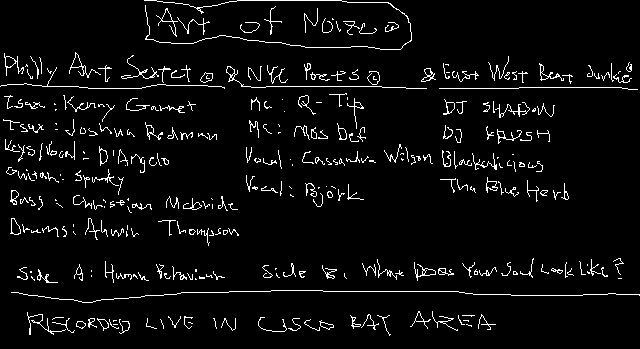 Art of Noize
Philly Art Sextet & NYC Poets & East West Beat Junkie
Tsax: Kenny Garret MC: Q-Tip DJ SHADOW
Tsax: Joshua Redman MC: Mos Def DJ KRUSH
Keys/Vocal: D'Angelo Vocal: Cassandra Wilson Blackalicious
Guitar: Spanky Vocal: Björk Tha Blue Herb
Bass: Christian McBride
Drums: Ahmir Thompson
Side A: Human Behaviour Side B: What Does Your Soul Look Like?
RECORDED LIVE IN CISCO BAY AREA